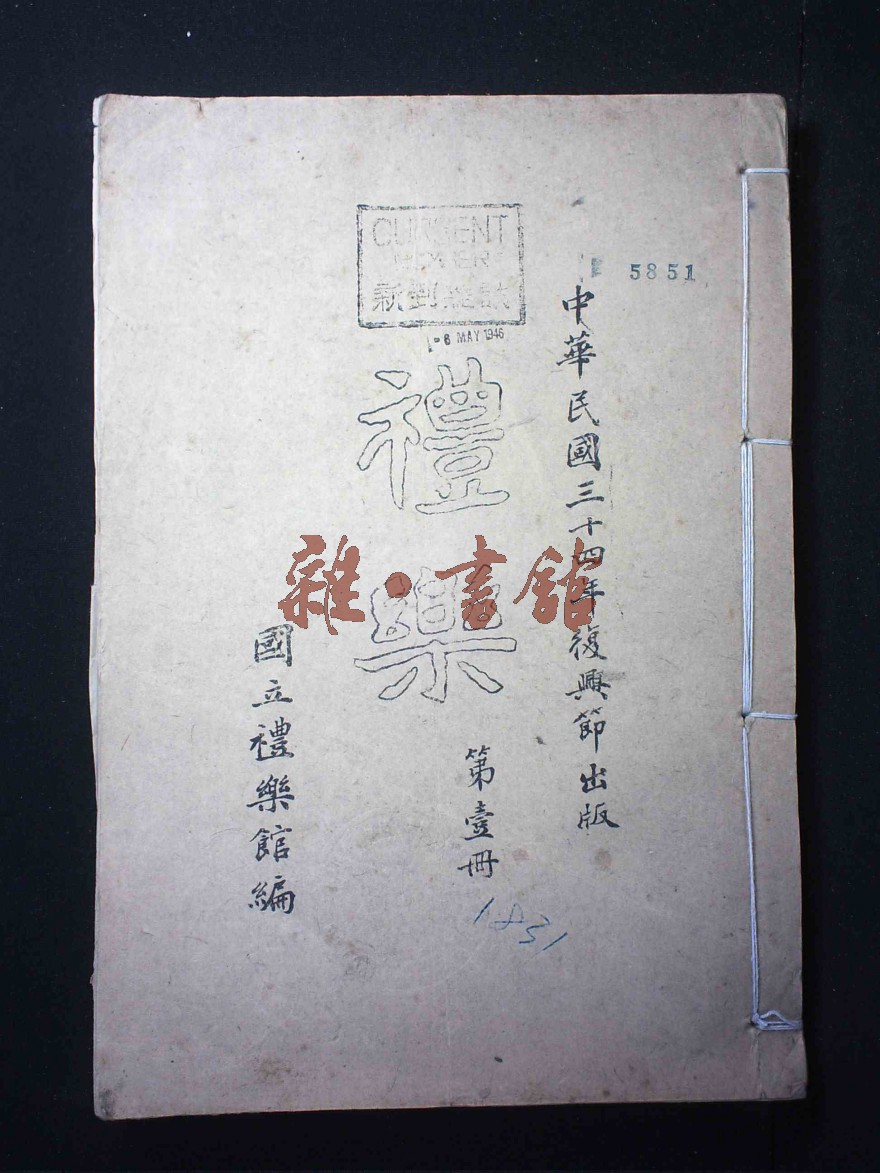 5851
中華民國三十四年復興節出版
CURRENT
新到雜誌
6 MAY 1946
禮樂
第壹冊
1831
國立禮樂館編
雜·書館